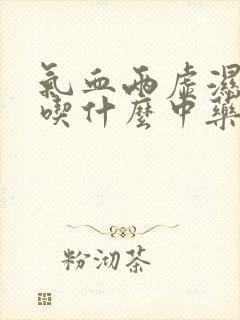 氣血兩虛濕
喫什麼中藥
粉沏茶